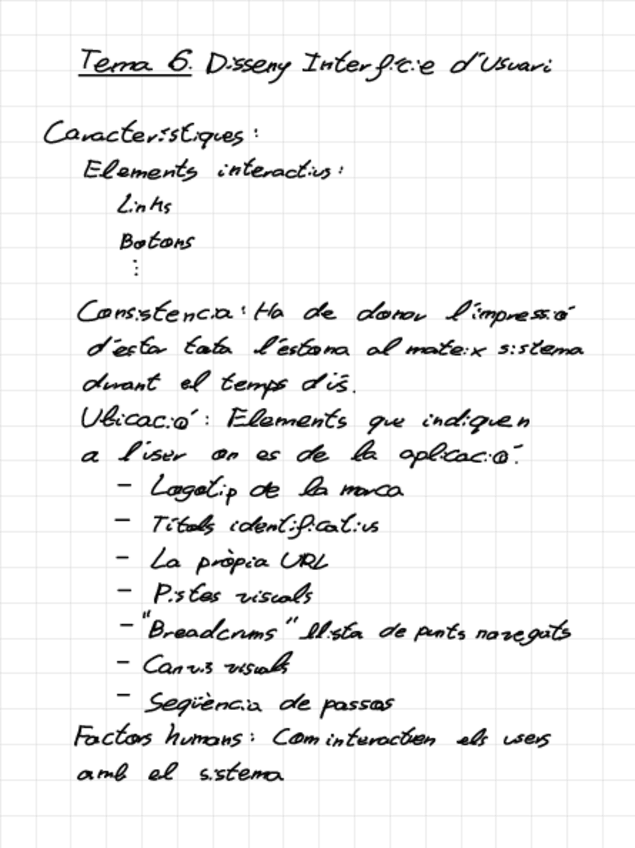 Tema 6. Disseny Interfície d'Usuari
Característiques:
Elements interactius:
Links
Botons
⋮
Consistencia: Ha de donar l'impressió
d'estar tota l'estona al mateix sistema
durant el temps d'ús.
Ubicació: Elements que indiquen
a l'user on es de la aplicació.
- Logotip de la marca
- Títols identificatius
- La pròpia URL
- Pistes visuals
- "Breadcrums" llista de punts navegats
- Canvis visuals
- Seqüència de passos
Factors humans: Com interactuen els users
amb el sistema